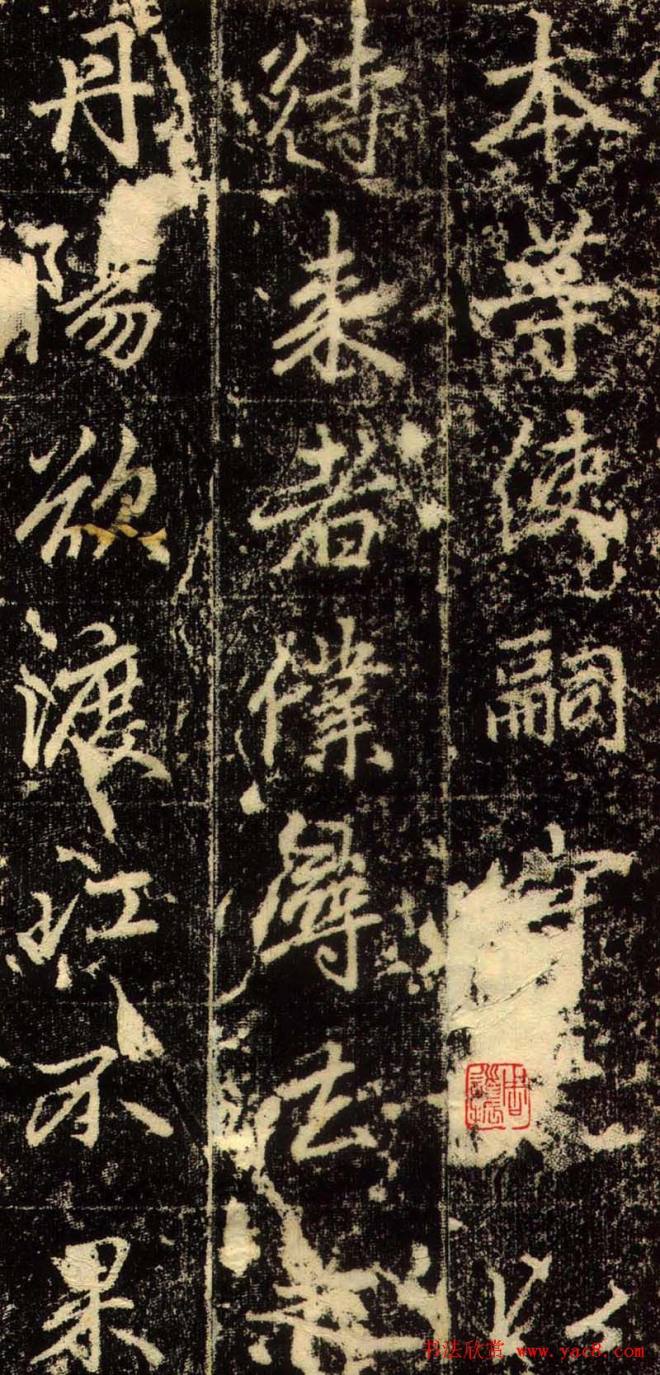 本尊使嗣守以
待来者僕尋去
丹陽欲渡江不果
书法欣赏 www.yac8.com